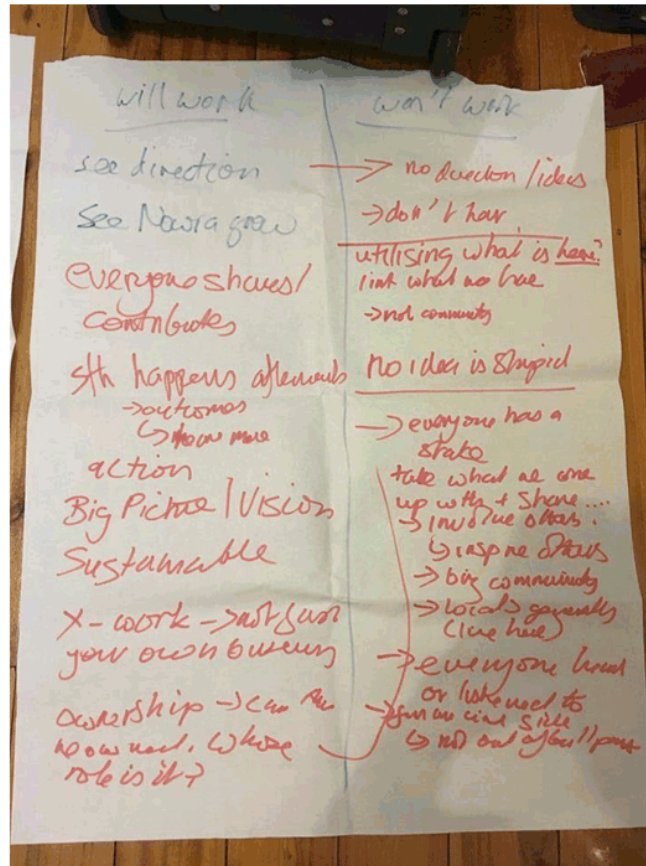 will work
see direction
See Nowra grow
everyone shares/
contributes
sth happens afterwards
→ outcomes
↳ more
action
Big Picture / Vision
Sustainable
X-work → not just
your own
ownership → can
Whose
role is it?
won't work
→ no direction / ideas
→ don't have
utilising what is here?
link what we have
→ not community
no idea is stupid
→ everyone has a
stake
take what we come
up with + share ....
→ involve others.
↳ inspire others
→ big community
→ locals generally
(live here)
→ everyone heard
or listened to
↳ not out of